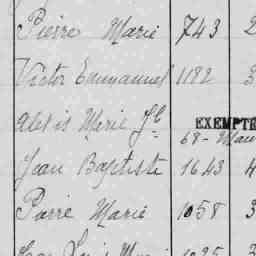 Pierre Marie 743 2
Victor Emmanuel 1182 3
Alexis Marie Jh EXEMPTÉ
68 - Mau
Jean Baptiste 1643 4
Pierre Marie 1058 3
Jean Louis Marie 1025 3